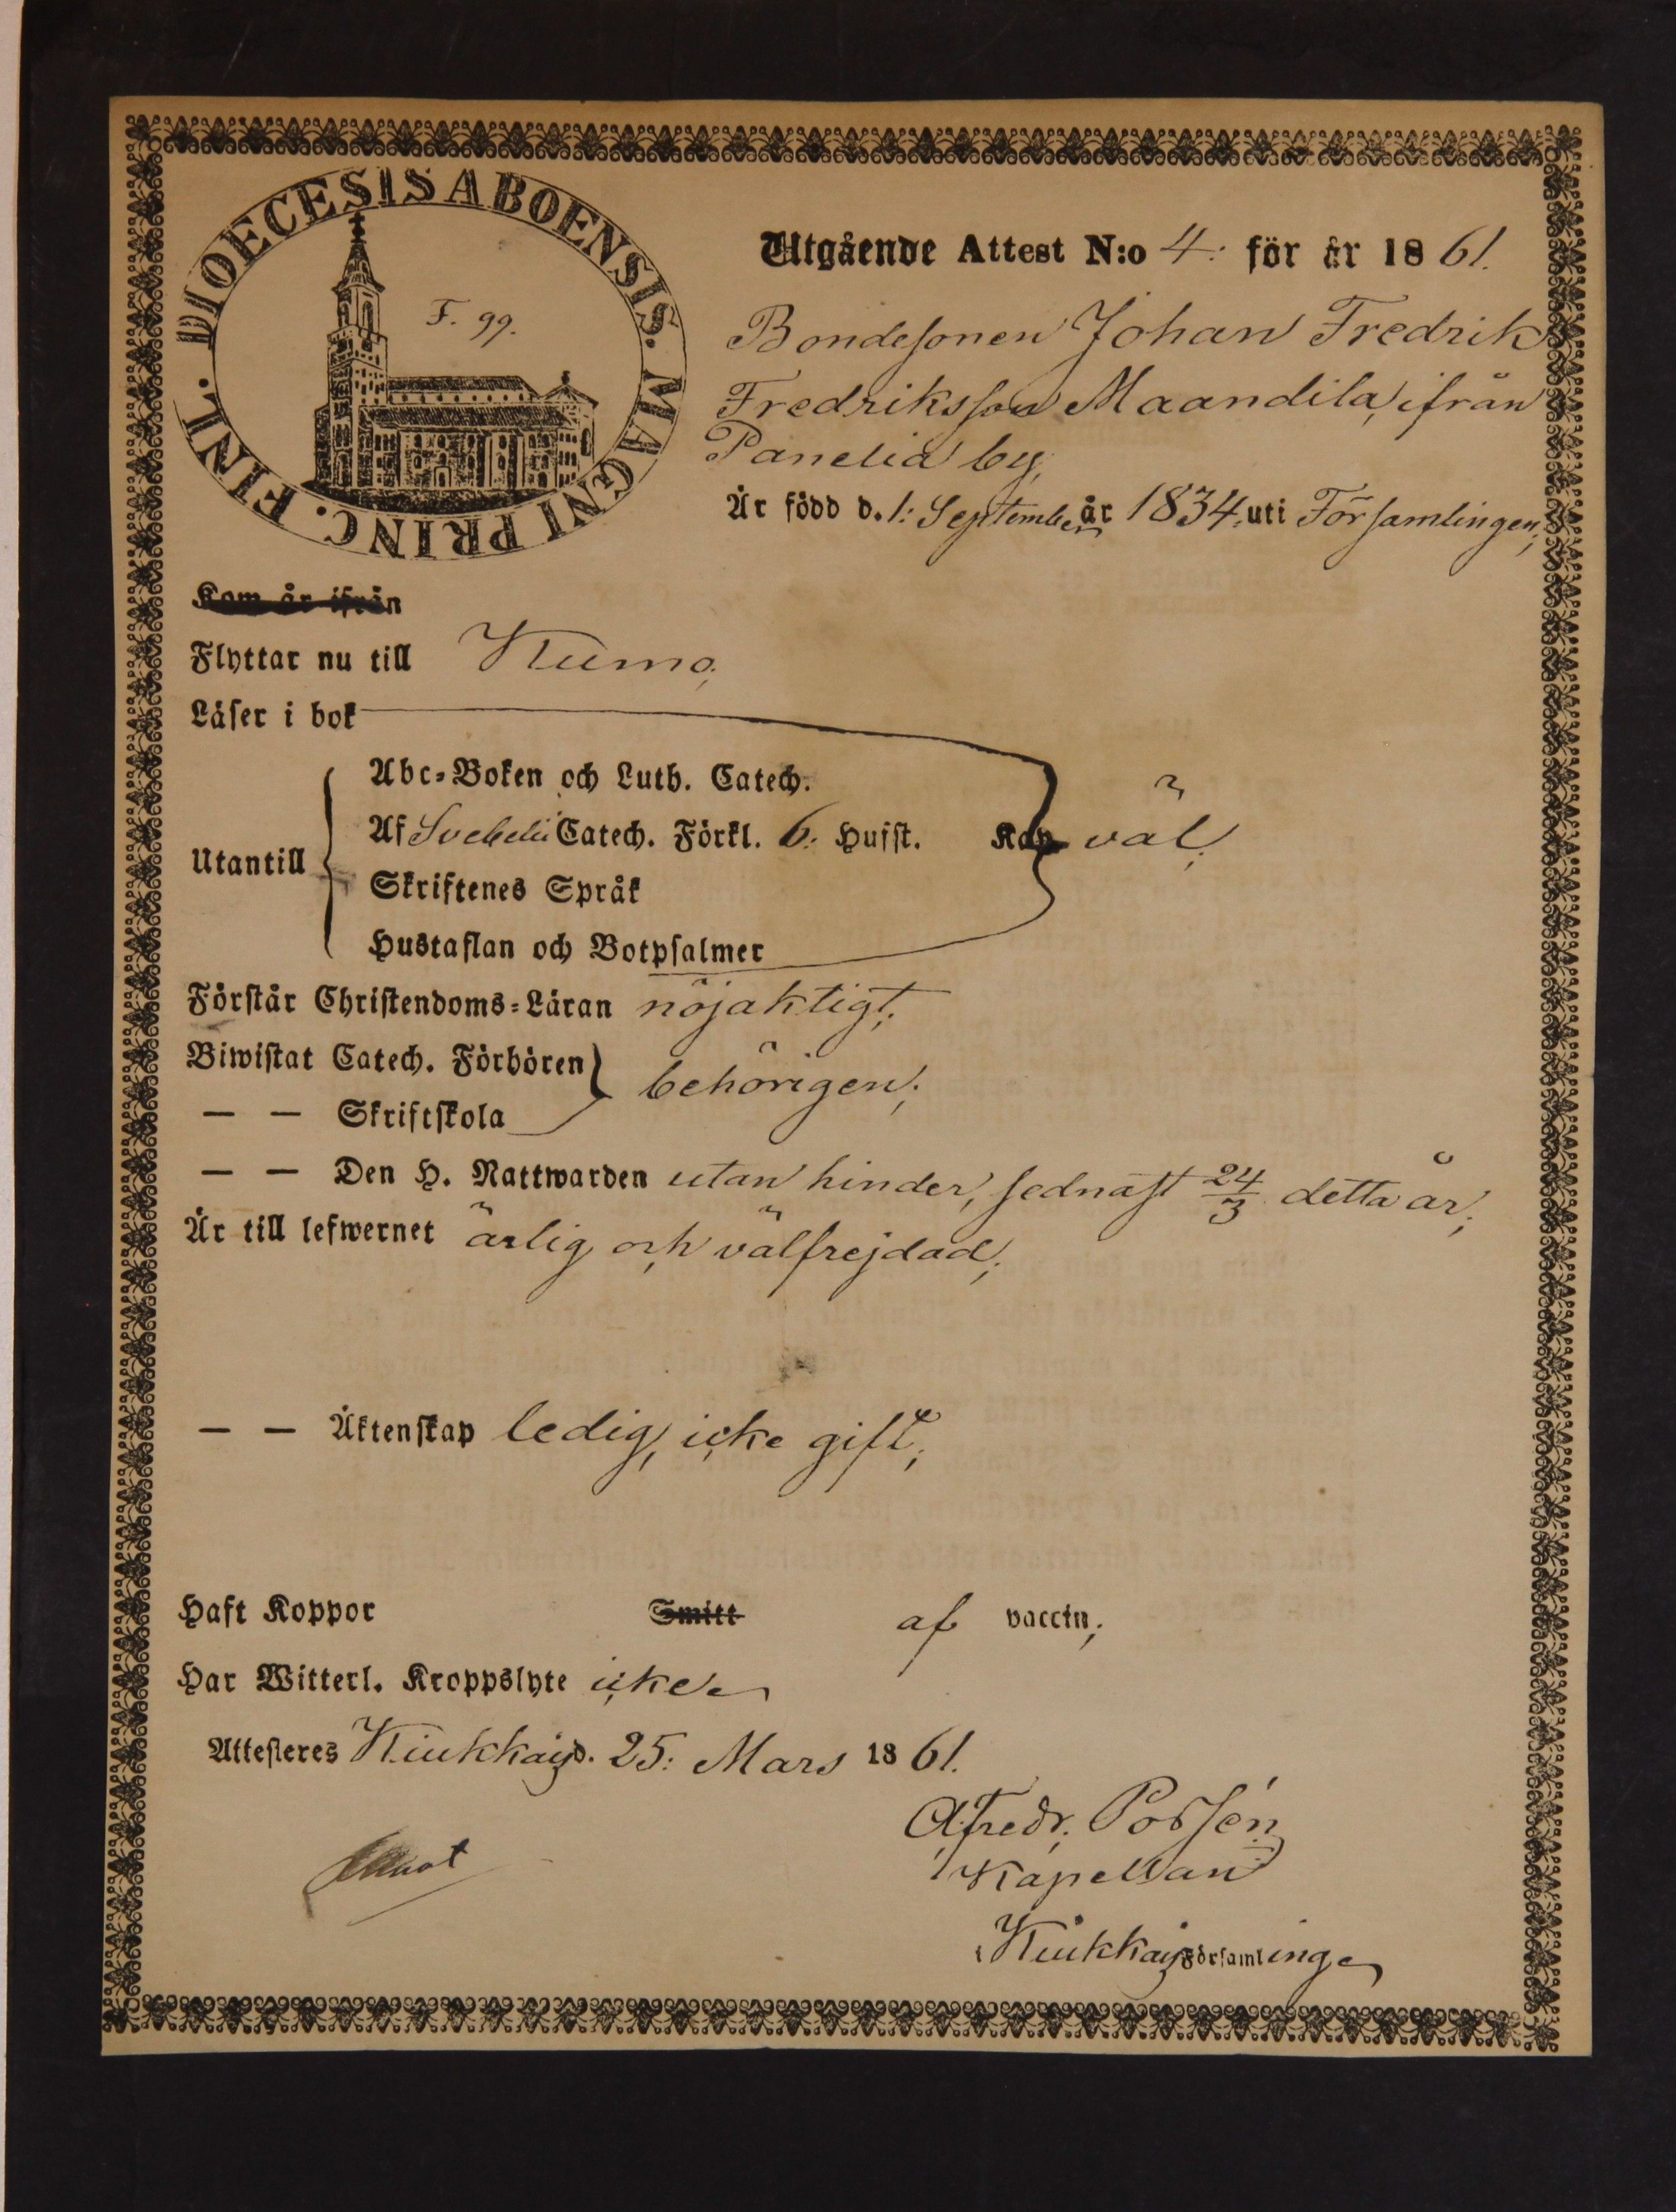 DIOECESIS ABOENSIS. MAGNI PRINC. FINL.
F. 99.
Utgående Attest N:o 4: för år 1861.
Bondesonen Johan Fredrik
Fredriksson Maandila, ifrån
Panelia by,
Är född d. 1: September år 1834, uti Församlingen;
Kom år ifrån
Flyttar nu till Kumo,
Läser i bok
Abc-Boken och Luth. Catech.
Af Svebelii Catech. Förkl. 6: Hufst. Kap väl;
Utantill
Skriftenes Språk
Hustaflan och Botpsalmer
Förstår Christendoms-Läran nöjaktigt;
Biwistat Catech. Förhören
behörigen;
— — Skriftskola
— — Den H. Nattwarden utan hinder, sednast 24/3 detta år;
Är till lefwernet ärlig och välfrejdad;
— — Äktenskap ledig, icke gift;
Haft Koppor Smitt af vaccin;
Har Witterl. Kroppslyte icke
Attesteres Kiukkais d. 25: Mars 1861.
Afredr. Possén
Kapellan
i Kiukkais Församlinge